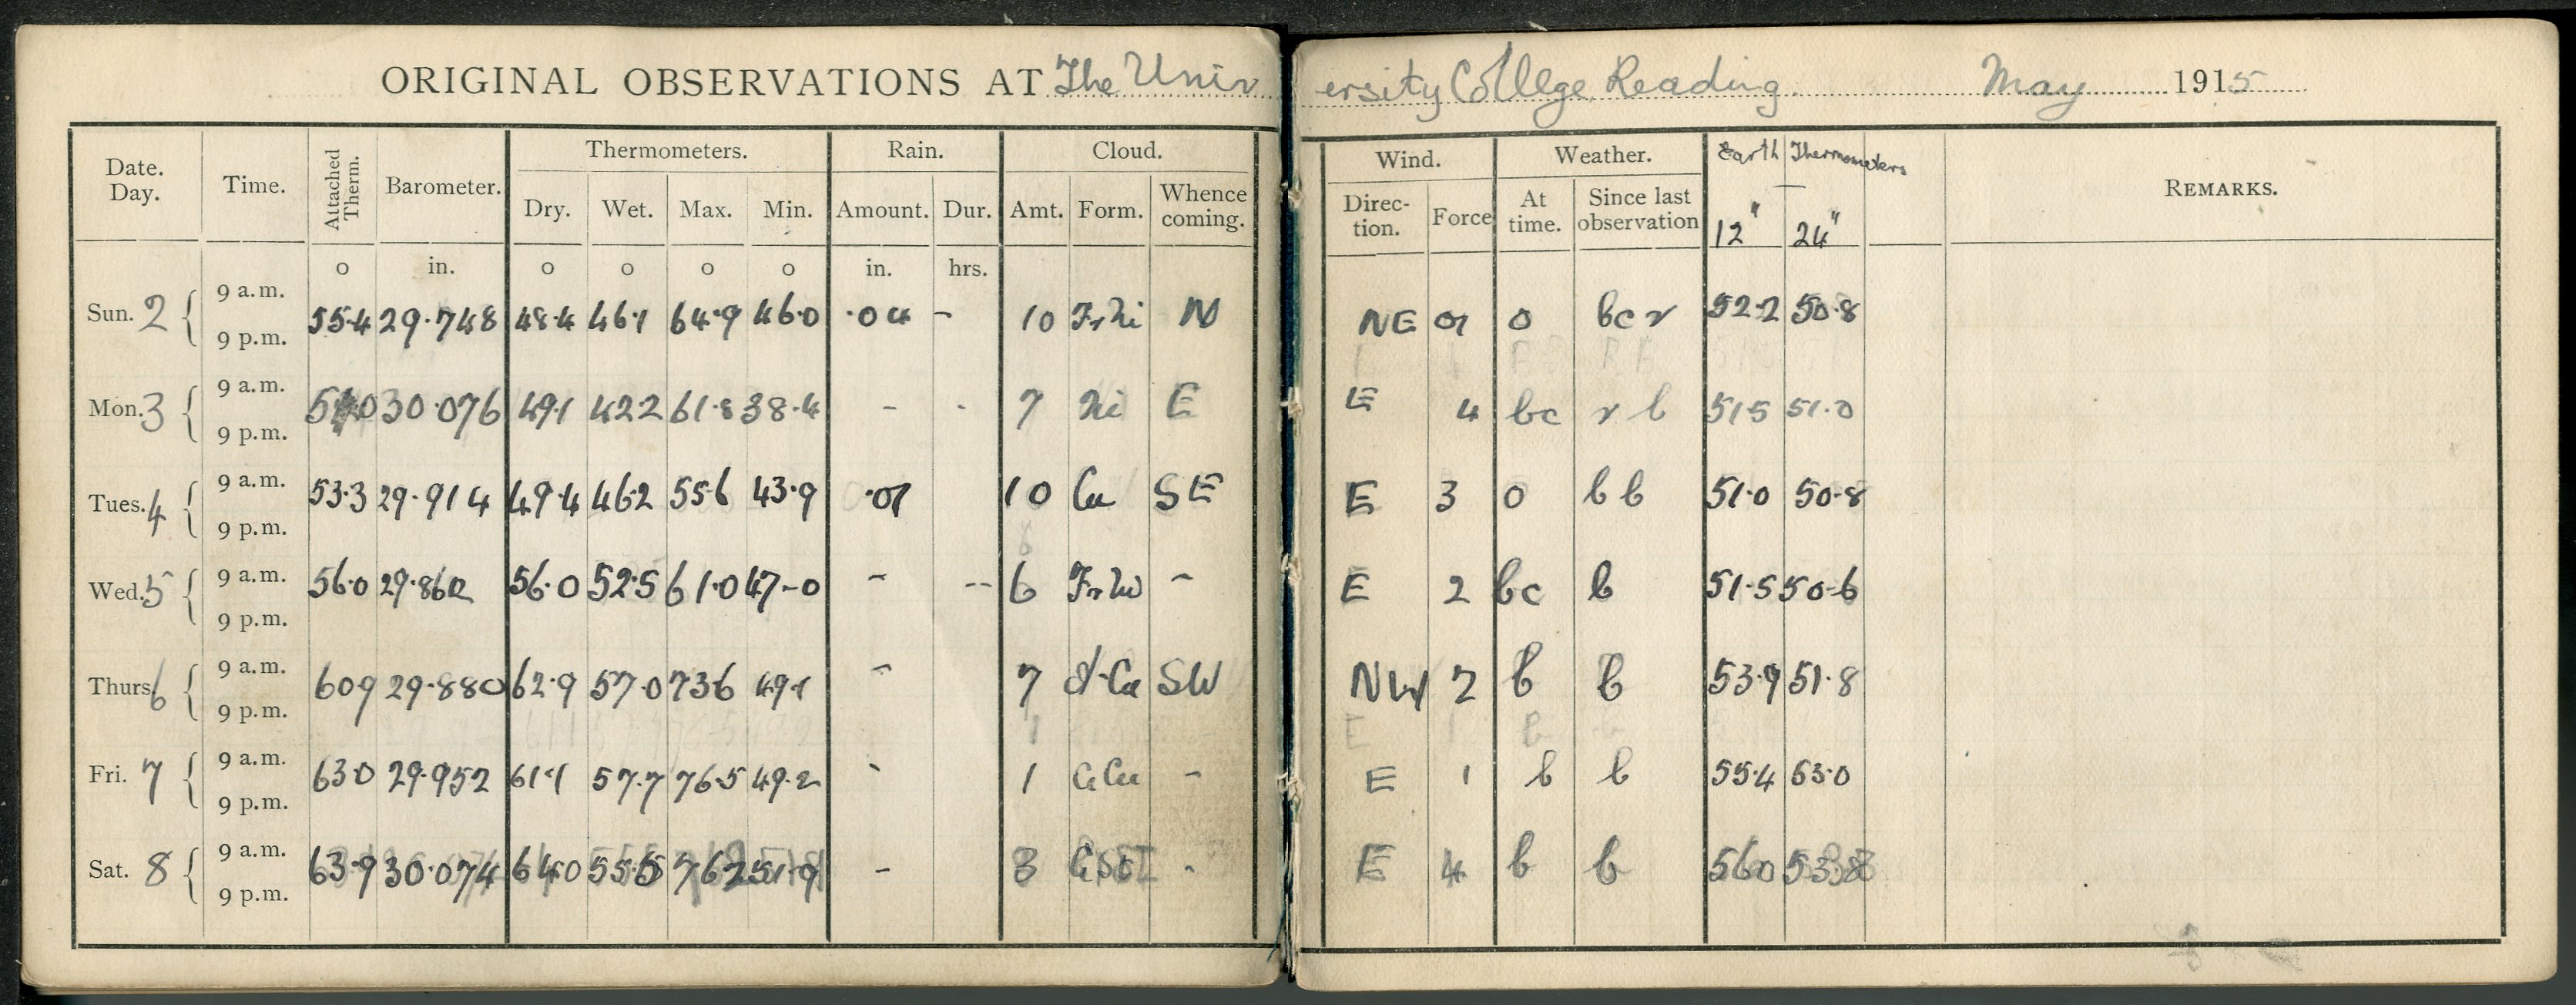 ORIGINAL OBSERVATIONS AT The University College Reading. May 1915
Date. Day. Time. Attached Therm. Barometer. Thermometers. Rain. Cloud. Wind. Weather. Earth Thermometers REMARKS.
Dry. Wet. Max. Min. Amount. Dur. Amt. Form. Whence coming. Direc-tion. Force At time. Since last observation 12" 24"
o in. o o o o in. hrs.
9 a.m.
Sun. 2 55.4 29.748 48.4 46.1 64.9 46.0 .04 - 10 Fr Ni N NE o bc r 52.2 50.8
9 p.m.
9 a.m.
Mon. 3 30.076 49.1 42.2 61.8 38.4 - - 7 Ni E E 4 bc r b 51.5 51.0
9 p.m.
9 a.m.
Tues. 4 53.3 29.914 49.4 46.2 55.6 43.9 .01 10 Cu SE E 3 o b b 51.0 50.8
9 p.m.
9 a.m.
Wed. 5 56.0 29.862 56.0 52.5 61.0 47-0 - -- 6 - E 2 bc b 51.5 50-6
9 p.m.
9 a.m.
Thurs 6 60.9 29.880 62.9 57.0 73.6 49.1 - 7 SW NW 2 b b 53.9 51.8
9 p.m.
9 a.m.
Fri. 7 63.0 29.952 61.1 57.7 76.5 49.2 - 1 Ci Cu - E 1 b b 55.4 53.0
9 p.m.
9 a.m.
Sat. 8 63.9 30.074 64.0 55.5 76.2 51.9 - 3 - E 4 b b 56.0 53.8
9 p.m.